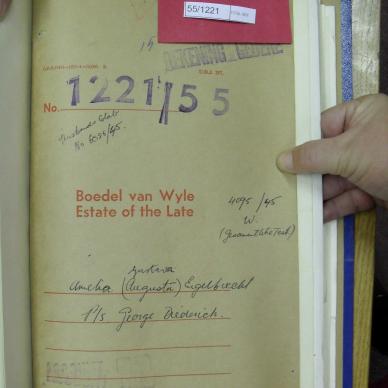 55/1221
15
REKENING GEDEND
No. 1221/55
Husbands Estate
No 4095/45.
Boedel van Wyle
Estate of the Late
4095/45
W.
(Gesamentlike Test.)
Gustava
Amelia (Augusta) Eigelbrecht
1's George Diederich.